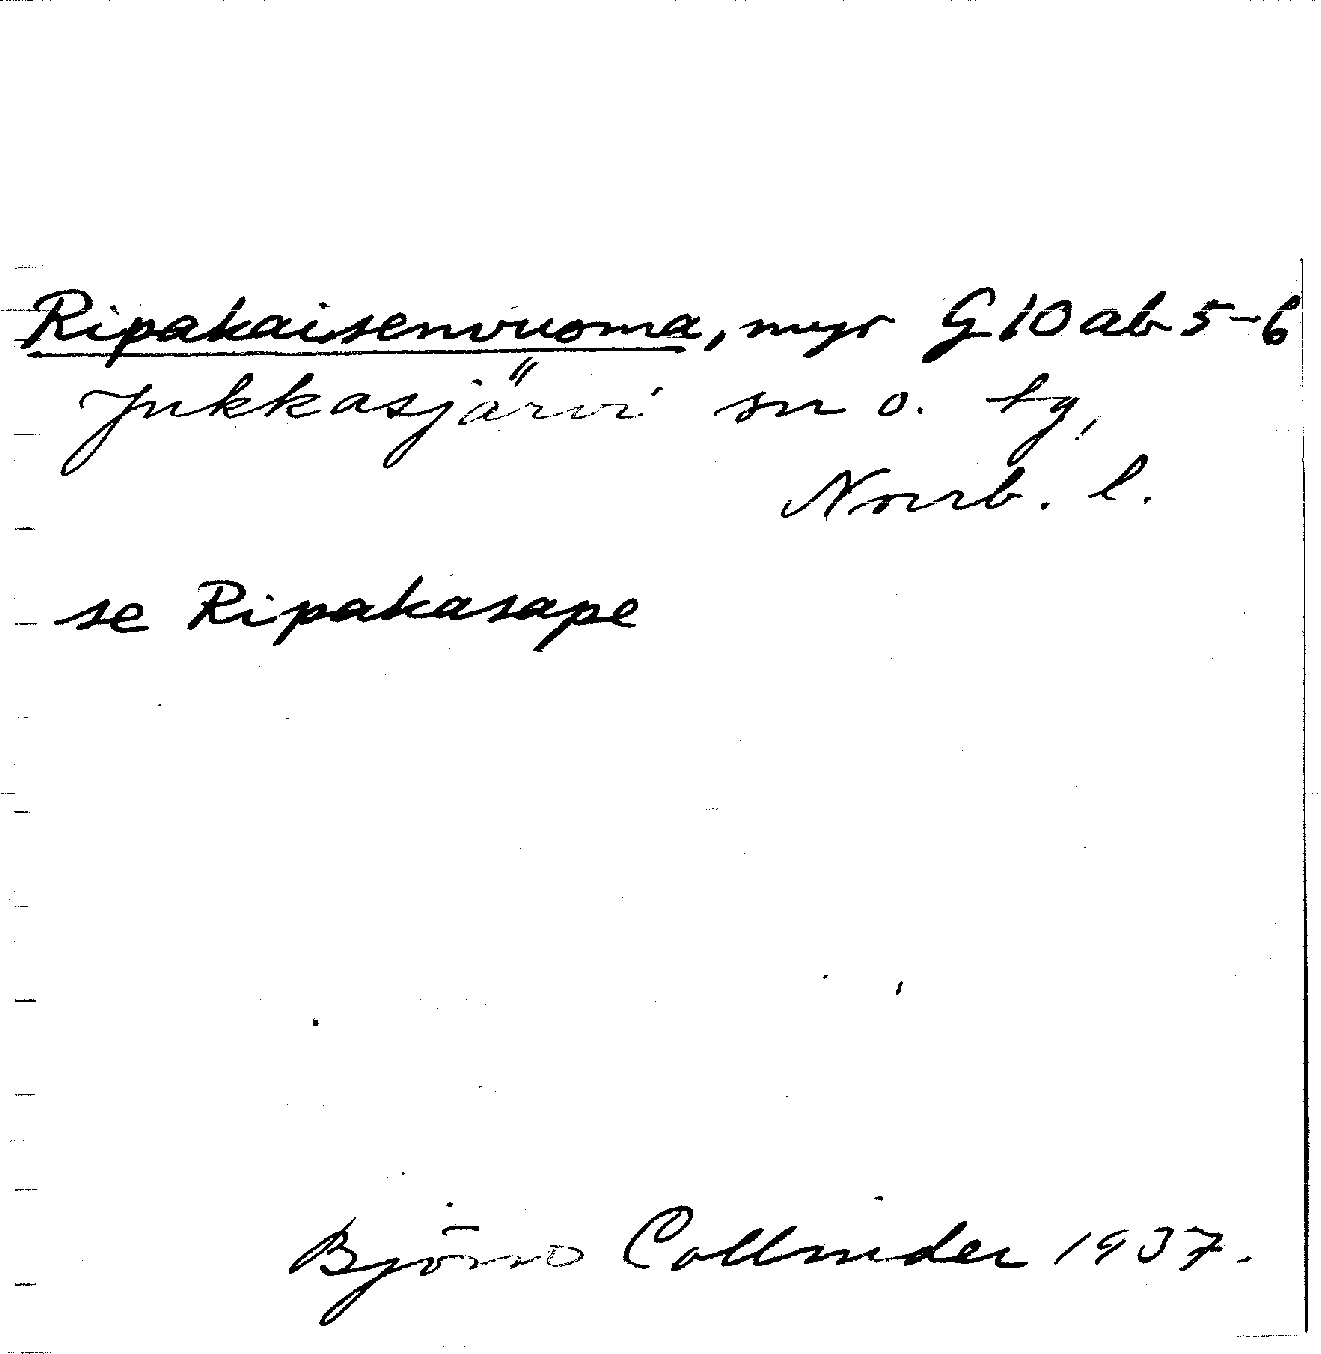 Ripakaisenvuoma, myr G 10 ab 5-6
Jukkasjärvi sn o. tg,
Norrb. l.
se Ripakasape
Björn Collinder 1937.